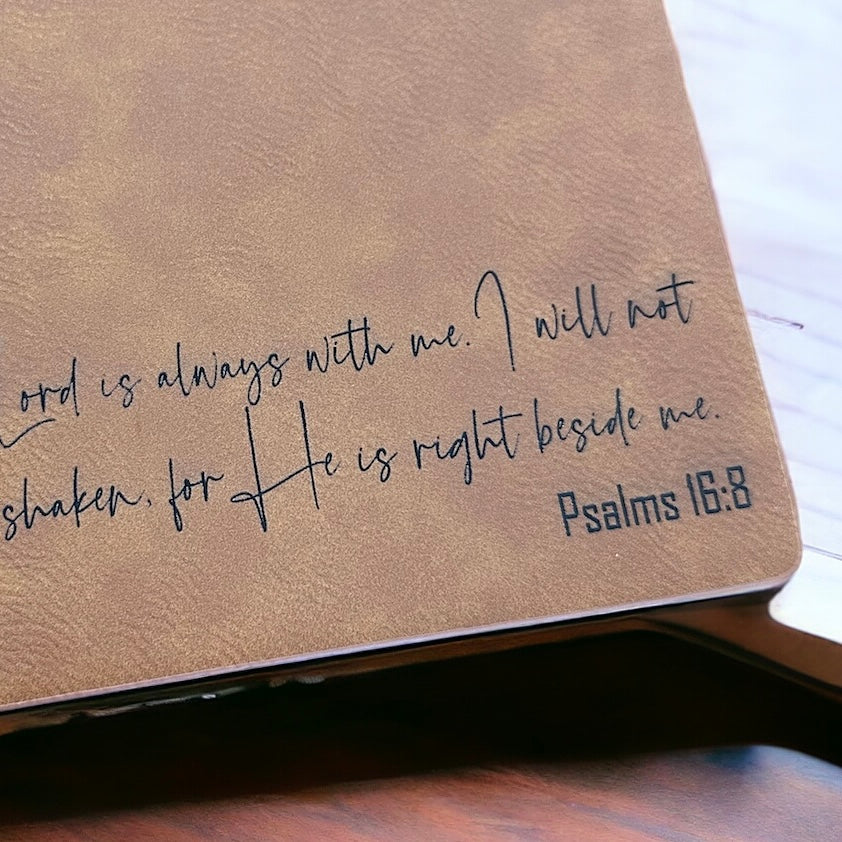 Lord is always with me. I will not
shaken, for He is right beside me.
Psalms 16:8